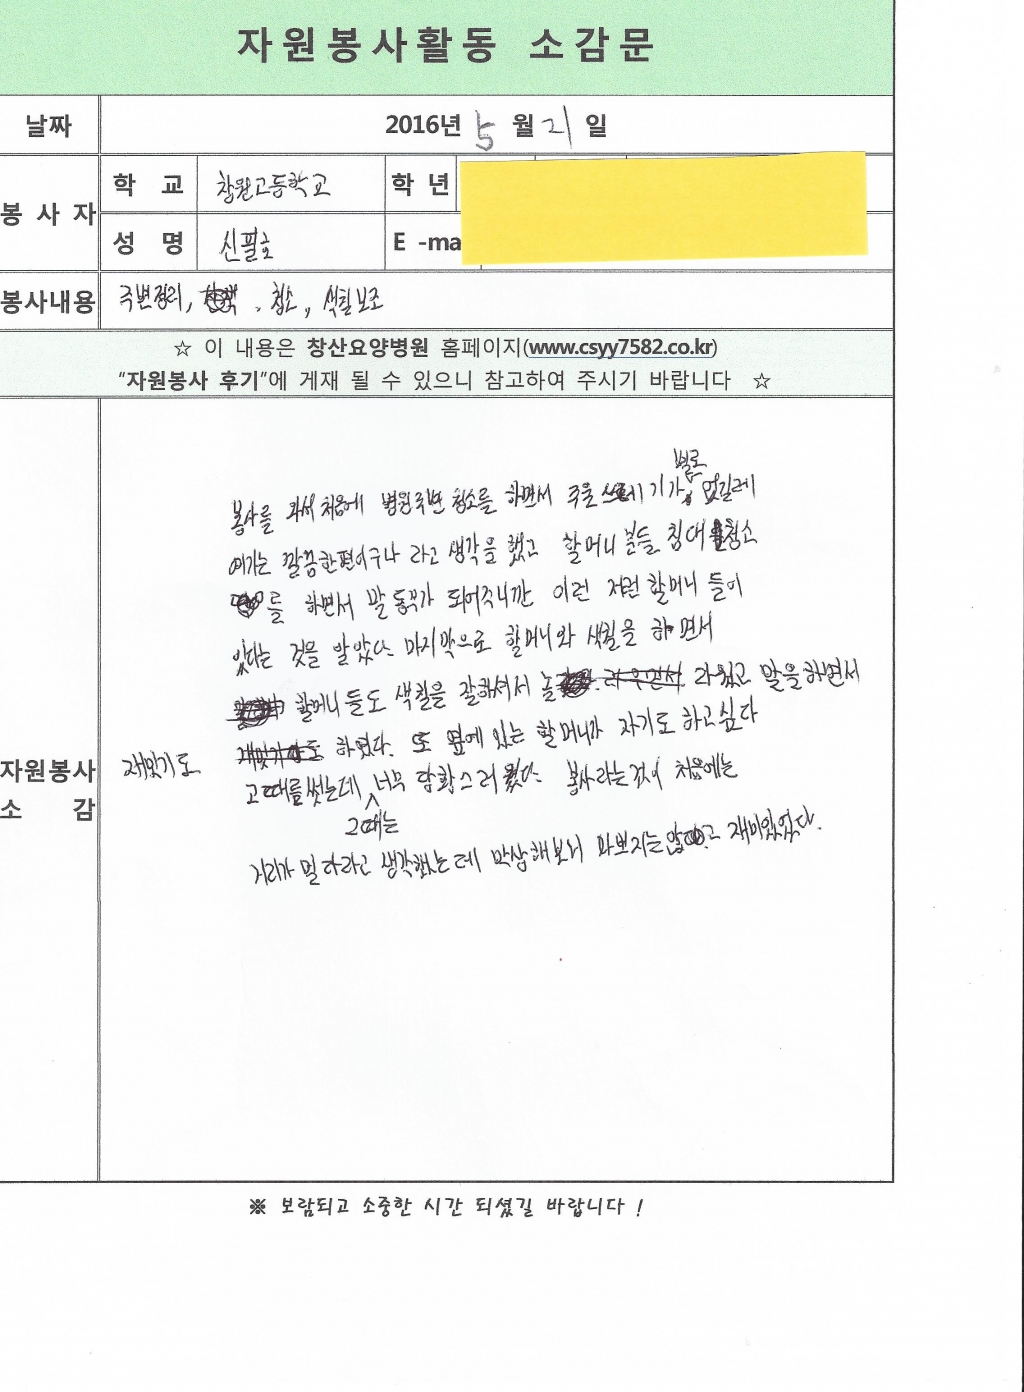 자원봉사활동 소감문
날짜 2016년 5 월 21 일
봉사자
학 교 창원고등학교 학 년
성 명 신필호 E -ma
봉사내용 주변정리, 청소, 색칠보조
☆ 이 내용은 창산요양병원 홈페이지(www.csyy7582.co.kr)
"자원봉사 후기"에 게재 될 수 있으니 참고하여 주시기 바랍니다 ☆
자원봉사
소 감
별로
봉사를 와서 처음에 병원주변 청소를 하면서 주울 쓰레기가 없길레
여기는 깔끔한편이구나 라고 생각을 했고 할머니 분들 침대 청소
를 하면서 말동무가 되어주니깐 이런 저런 할머니 들이
있다는 것을 알았다. 마지막으로 할머니와 색칠을 하면서
할머니 들도 색칠을 잘하셔서 놀라웠고 말을 하면서
재밌기도 하였다. 또 옆에 있는 할머니가 자기도 하고싶다
고 떼를 썼는데 너무 당황스러웠다. 봉사라는것이 처음에는
그때는
거리가 멀다라고 생각했는데 막상해보니 나쁘지는않고 재미있었다.
※ 보람되고 소중한 시간 되셨길 바랍니다 !